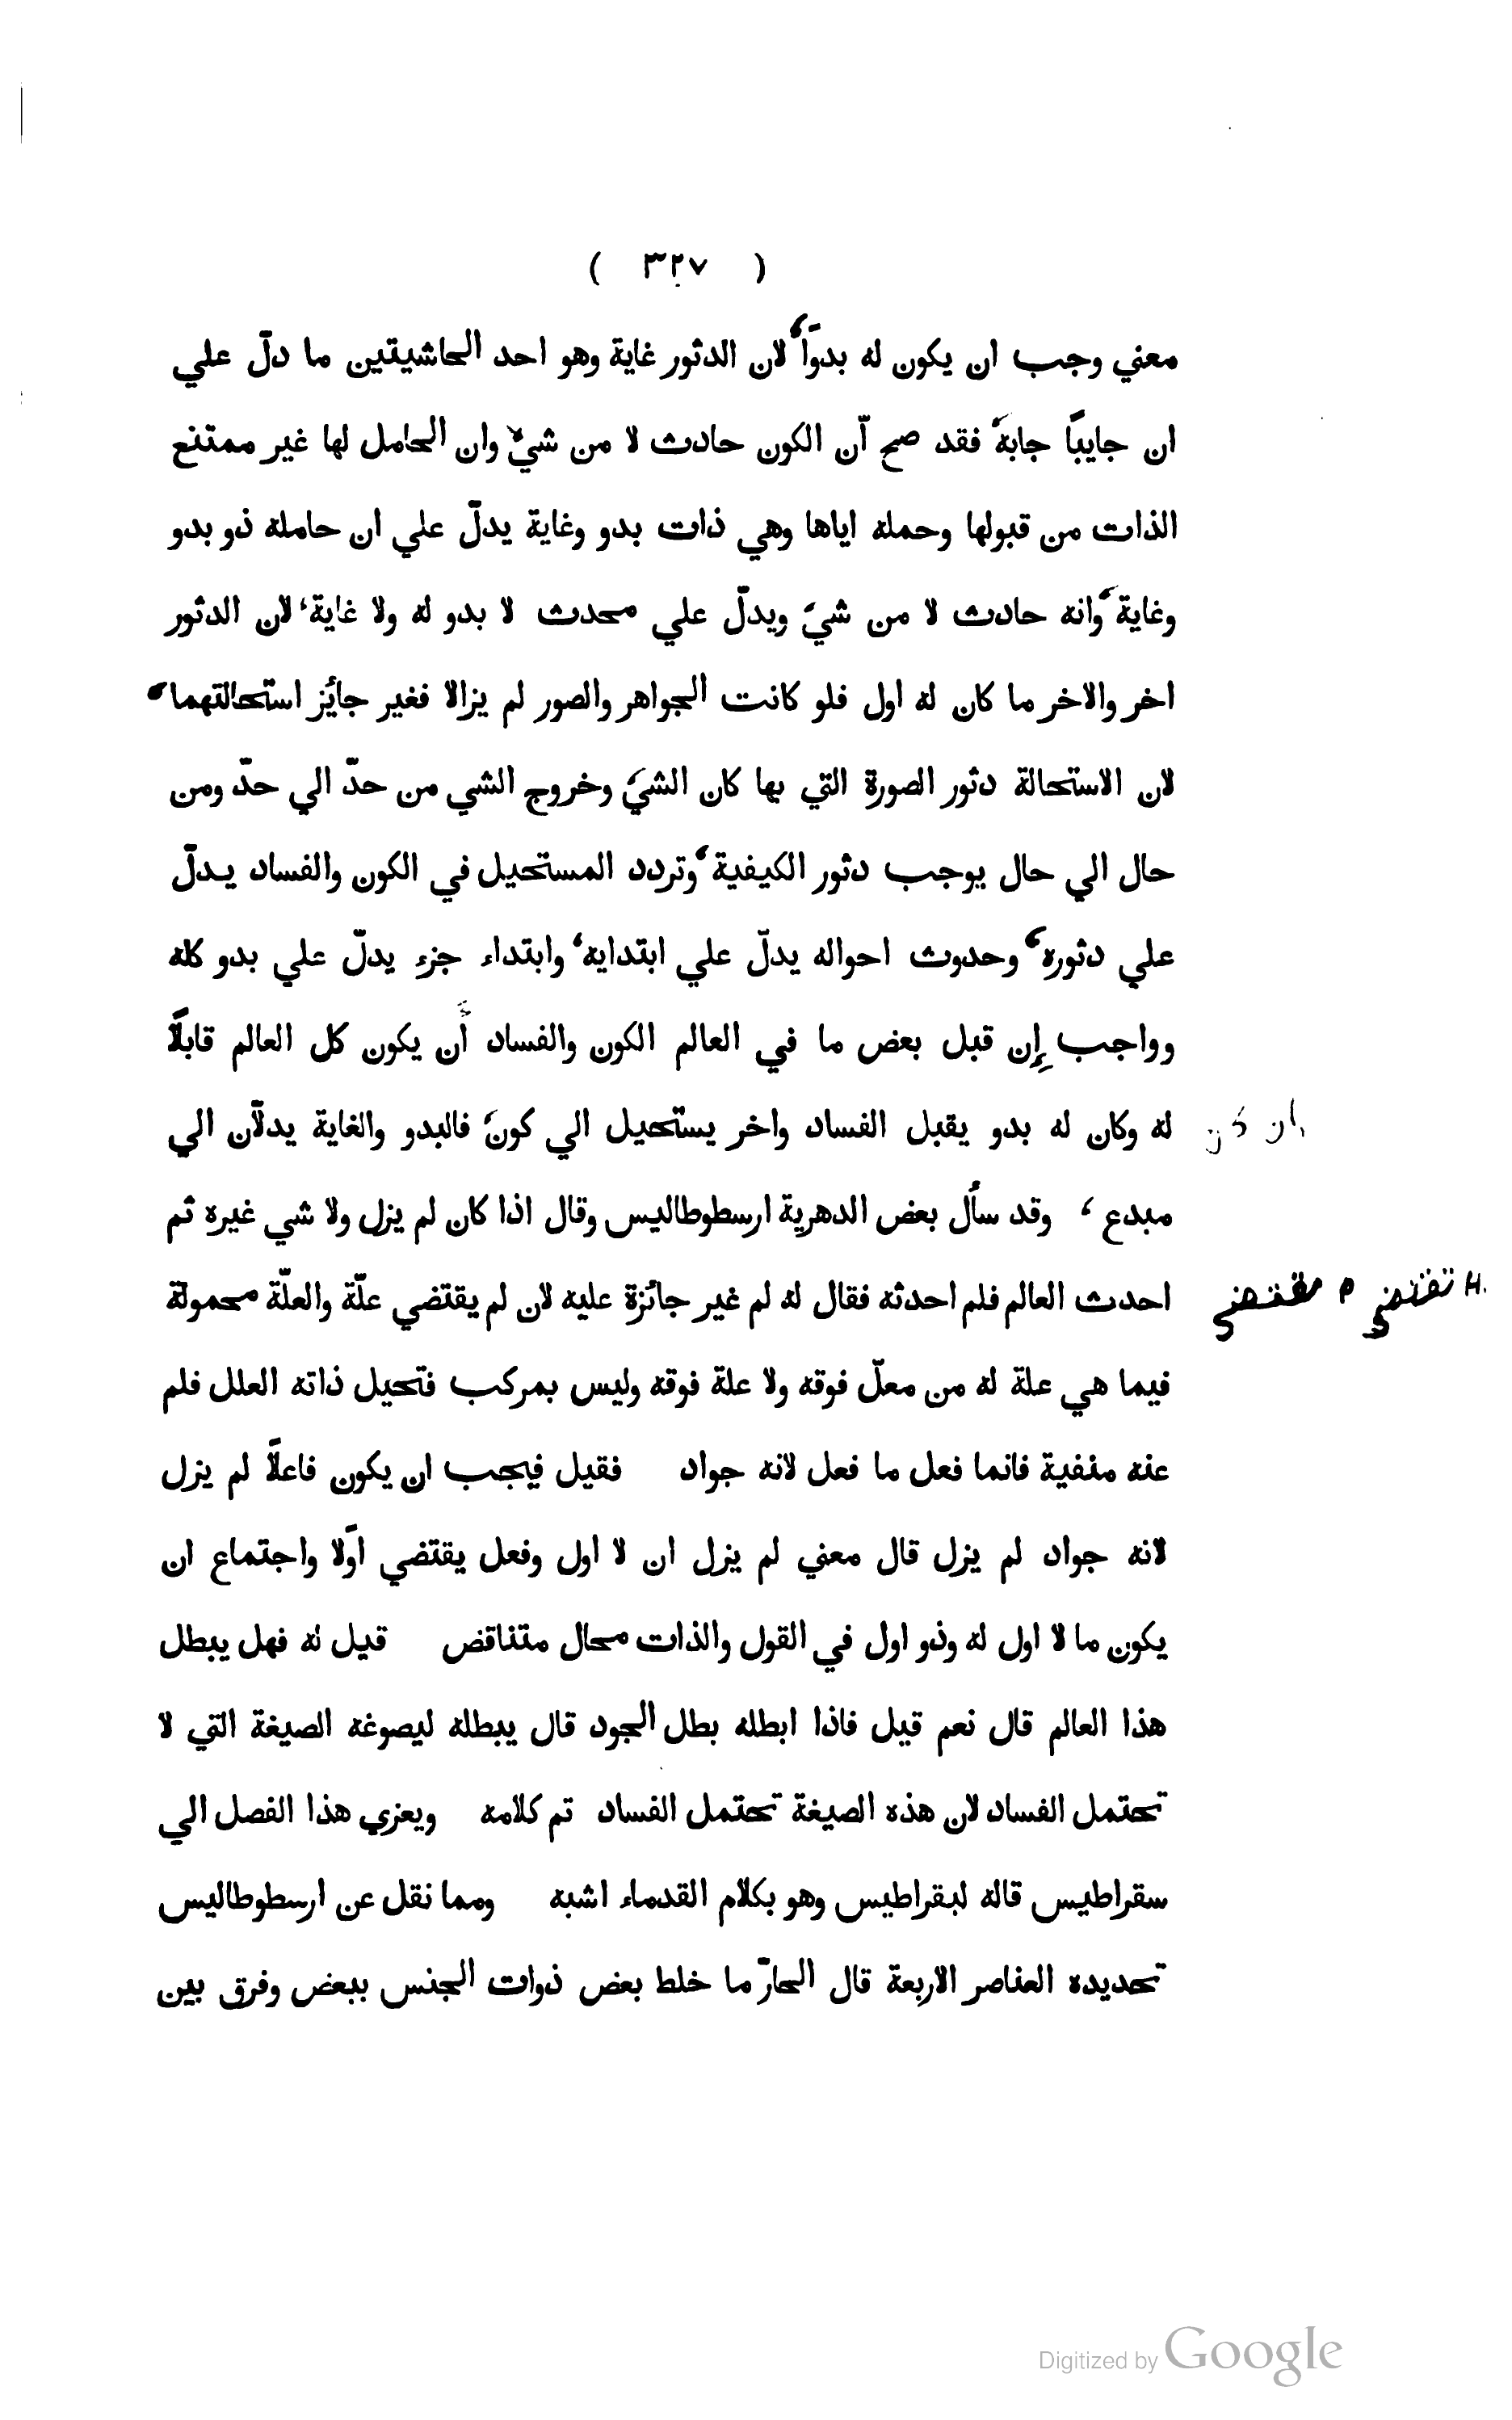 ( ٣٢٧ )
معني وجب ان يكون له بدوًا، لان الدثور غاية وهو احد الحاشيتين ما دلّ علي
ان جايبًا جابه، فقد صح أن الكون حادث لا من شيء وان الحامل لها غير ممتنع
الذات من قبولها وحمله اياها وهي ذات بدو وغاية يدلّ علي ان حامله ذو بدو
وغاية، وانه حادث لا من شيء ويدلّ علي محدث لا بدو له ولا غاية، لان الدثور
اخر والاخر ما كان له اول فلو كانت الجواهر والصور لم يزالا فغير جائز استحالتهما،
لان الاستحالة دثور الصورة التي بها كان الشيء وخروج الشي من حدّ الي حدّ ومن
حال الي حال يوجب دثور الكيفية، وتردد المستحيل في الكون والفساد يدلّ
علي دثوره، وحدوث احواله يدلّ علي ابتدايه، وابتداء جزء يدلّ علي بدو كله
وواجب إن قبل بعض ما في العالم الكون والفساد أن يكون كل العالم قابلًا
له وكان له بدو يقبل الفساد واخر يستحيل الي كون، فالبدو والغاية يدلّان الي
مبدع، وقد سأل بعض الدهرية ارسطوطاليس وقال اذا كان لم يزل ولا شي غيره ثم
احدث العالم فلم احدثه فقال له لم غير جائزة عليه لان لم يقتضي علّة والعلّة محمولة
H. تقتضي م مقتضي
فيما هي علة له من معلّ فوقه ولا علة فوقه وليس بمركب فتحيل ذاته العلل فلم
عنه منفية فانما فعل ما فعل لانه جواد فقيل فيجب ان يكون فاعلًا لم يزل
لانه جواد لم يزل قال معني لم يزل ان لا اول وفعل يقتضي اوّلا واجتماع ان
يكون ما لا اول له وذو اول في القول والذات محال متناقض قيل له فهل يبطل
هذا العالم قال نعم قيل فاذا ابطله بطل الجود قال يبطله ليصوغه الصيغة التي لا
تحتمل الفساد لان هذه الصيغة تحتمل الفساد تم كلامه ويعزي هذا الفصل الي
سقراطيس قاله لبقراطيس وهو بكلام القدماء اشبه ومما نقل عن ارسطوطاليس
تحديده العناصر الاربعة قال الحارّ ما خلط بعض ذوات الجنس ببعض وفرق بين
Digitized by Google